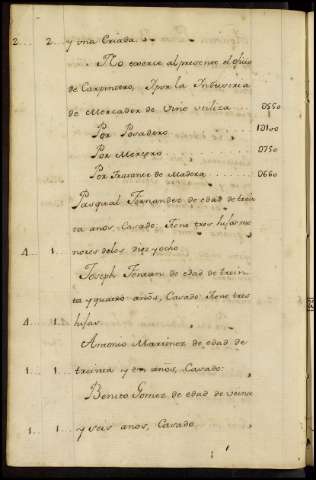 2... 2... y una Criada.
No exerce al presente el oficio
de Carpintero, Y por la Industria
de Mercader de Vino utiliza... 0550
Por Posadero........
Por Mercero........ 0750
Por Tratante de Madera..... 0660
Pasqual Fernandez de edad de trein
ta anos, Casado, tiene tres hijas me
4... 1... nores de los diez y ocho
Joseph de edad de trein
ta y quatro años, Casado tiene tres
4... 1... hijas
Antonio Martinez de edad de
1... 1... treinta y años, Casado.
Benito Gomez de edad de veinte
1... 1... y seis anos, Casado